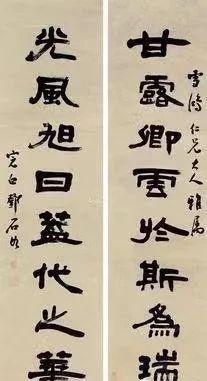 雪鴻仁兄大人雅屬
甘露卿雲於斯為瑞
光風旭日蓋代之華
完白鄧石如